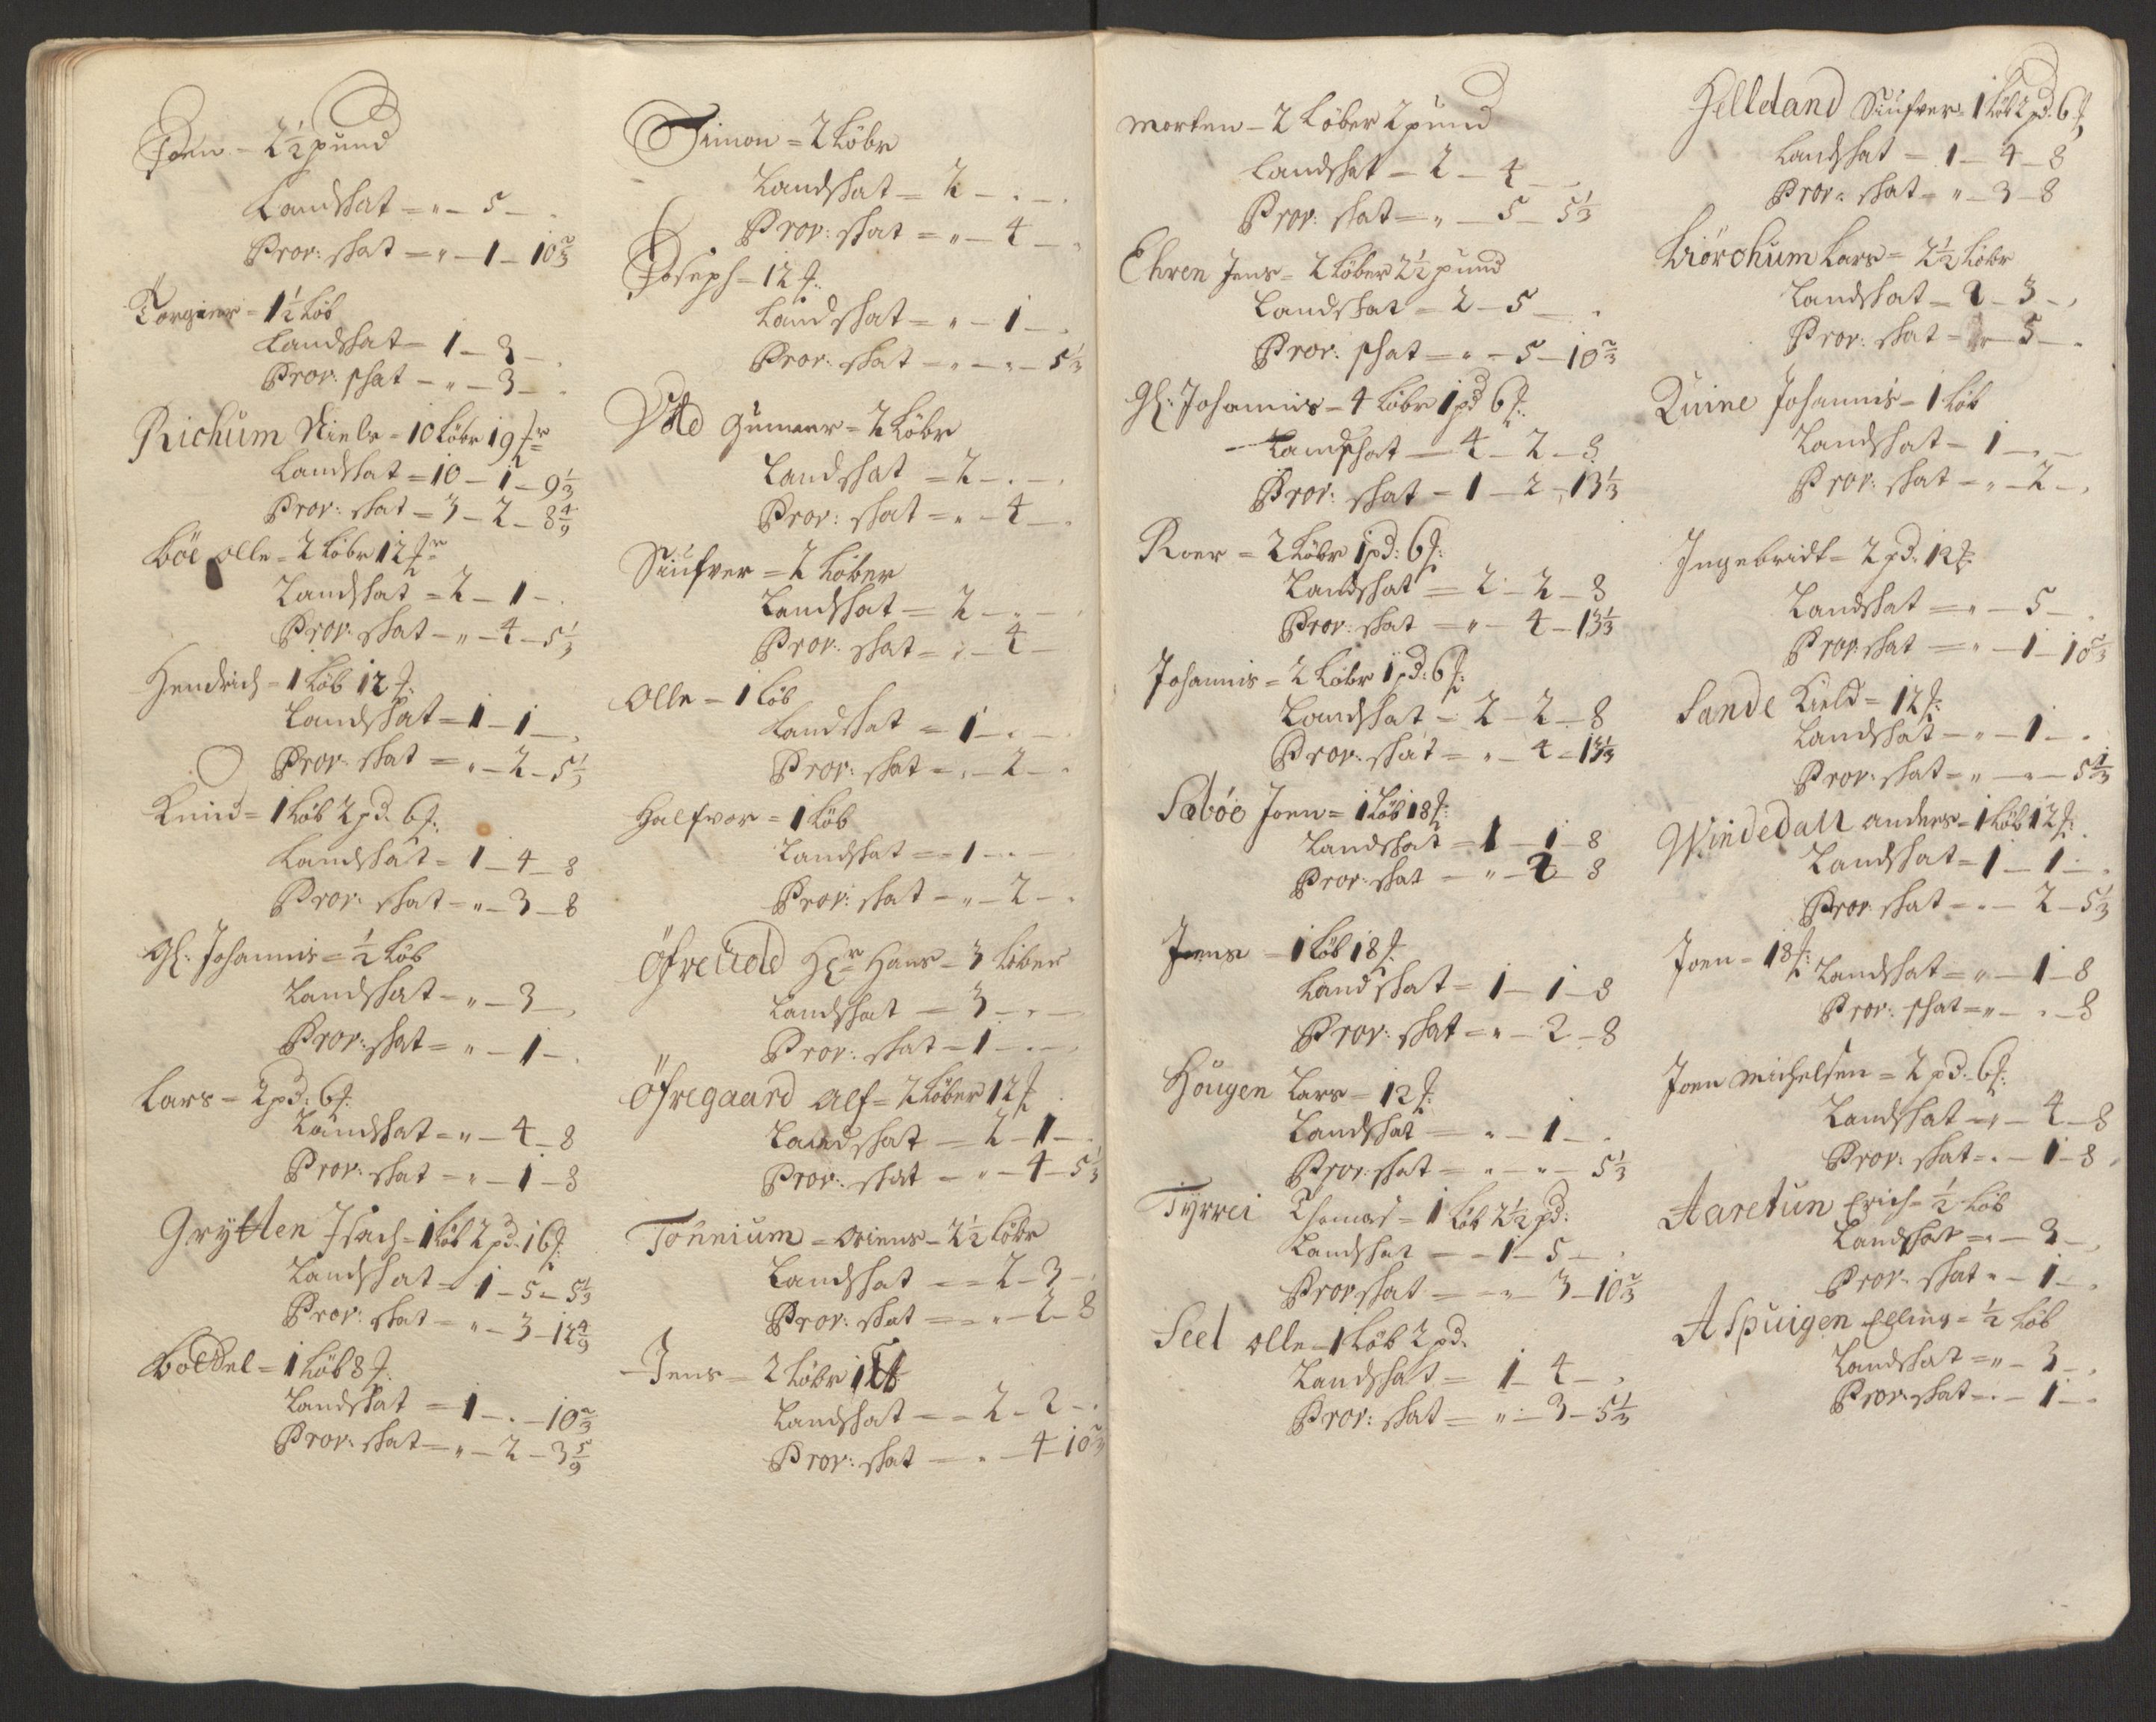 Joen - 2½ pund
Landskat = " - 5 - .
Prov: skat = " - 1 - 10⅔
Torgier - 1½ Løb
Landskat - 1 - 3 - .
Prov: skat - " - 3 - .
Richum Niels - 10 Løbr 19 f:r
Landskat = 10 - 1 - 9⅓
Prov: skat = 3 - 2 - 8 4/9
Böe olle - 2 Løbr 12 f:r
Landskat = 2 - 1 - .
Prov: skat - " - 4 - 5⅓
Hendrich - 1 Løb 12 f:
Landskat = 1 - 1 - .
Prov: skat = " - 2 - 5⅓
Knud = 1 Løb 2 pd. 6 f:
Landskat = 1 - 4 - 8
Prov: skat - " - 3 - 8
Gl: Johannis = ½ Løb
Landskat - " - 3 - .
Prov: skat = " - 1 - .
Lars - 2 pd: 6 f:
Landskat = " - 4 - 8
Prov: skat - " - 1 - 8
Grytten Isach = 1 Løb 2 pd. 16 f:
Landskat - 1 - 5 - 5⅓
Prov: skat = " - 3 - 12 4/9
Boldel = 1 Løb 8 f:
Landskat = 1 - . - 10⅔
Prov: skat - " - 2 - 3 5/9
Simon = 2 Løbr
Landskat = 2 - . - .
Prov: skat = " - 4 - "
Joseph - 12 f:
Landskat = " - 1 - .
Prov: skat = " - " - 5⅓
Vttd Gunner = 2 Løbr
Landskat = 2 - . - .
Prov: skat = " - 4 - .
Siufver = 2 Løber
Landskat = 2 - . -
Prov: skat = " - 4 -
Olle - 1 Løb
Landskat = 1 - . -
Prov: skat = " - 2 - .
Halfvor = 1 Løb
Landskat = 1 - . -
Prov: skat - " - 2 - .
Öfretted Hr Hans - 3 Løber
Landskat = 3 - . -
Prov: skat - 1 - . - .
Öfregaard Alf = 2 Løber 12 f
Landskat = 2 - 1 - .
Prov: skat - " - 4 - 5⅓
Tönnium - oriens - 2½ Løbr
Landskat = 2 - 3 - .
Prov: skat = " - 2 - 8
Jens - 2 Løbr 1
Landskat = 2 - 2 - .
Prov: skat - " - 4 - 10⅔
Morten - 2 Løber 2 pund
Landskat - 2 - 4 - .
Prov: skat = " - 5 - 5⅓
Ehren Jens - 2 Løber 2½ pund
Landskat - 2 - 5 - .
Prov: skat = " - 5 - 10⅔
Gl: Johannis - 4 Løbr 1 pd 6 f:
Landskat - 4 - 2 - 8
Prov: skat - 1 - 2 - 13⅓
Roer = 2 Løbr 1 pd: 6 f:
Landskat = 2 - 2 - 8
Prov: skat = " - 4 - 13⅓
Johannis = 2 Løbr 1 pd: 6 f:
Landskat = 2 - 2 - 8
Prov: skat = " - 4 - 13⅓
Sæbóe Joen = 1 Løb 18 f:
Landskat = 1 - 1 - 8
Prov: skat - " - 2 - 8
Jens - 1 Løb 18 f:
Landskat = 1 - 1 - 8
Prov: skat = " - 2 - 8
Hougen Lars - 12 f:
Landskat - " - 1 - .
Prov: skat = " - " - 5⅓
Tyrrei Thomas = 1 Løb 2½ pd:
Landskat - 1 - 5 - .
Prov skat = " - 3 - 10⅔
Seel olle - 1 Løb 2 pd.
Landskat = 1 - 4 - .
Prov: skat = " - 3 - 5⅓
Helleland Siufver - 1 Løb 2 pd. 6 f
Landskat = 1 - 4 - 8
Prov: skat = " - 3 - 8
Biörchum Lars = 2½ Løbr
Landskat - 2 - 3 - .
Prov: skat - " - 5 - .
Quine Johannis - 1 Løb
Landskat - 1 - . -
Prov: skat - " - 2 - .
Ingebridt - 2 pd: 12 f:
Landskat = " - 5 - .
Prov skat = " - 1 - 10⅔
Sande Kield = 12 f:
Landskat - " - 1 - .
Prov: skat - " - " - 5⅓
Windedall anders - 1 Løb 12 f:
Landskat = 1 - 1 - .
Prov: skat - . - 2 - 5⅓
Joen = 18 f:
Landskat = " - 1 - 8
Prov: skat = " - . - 8
Joen Michelsen = 2 pd. 6 f:
Landskat = " - 4 - 8
Prov: skat = . - 1 - 8
Aaretun Erich - ½ Løb
Landskat = . - 3 - .
Prov: skat - " - 1 - .
ASpuigen Elling = ½ Løb
Landskat = " - 3 - .
Prov: skat - . - 1 - .